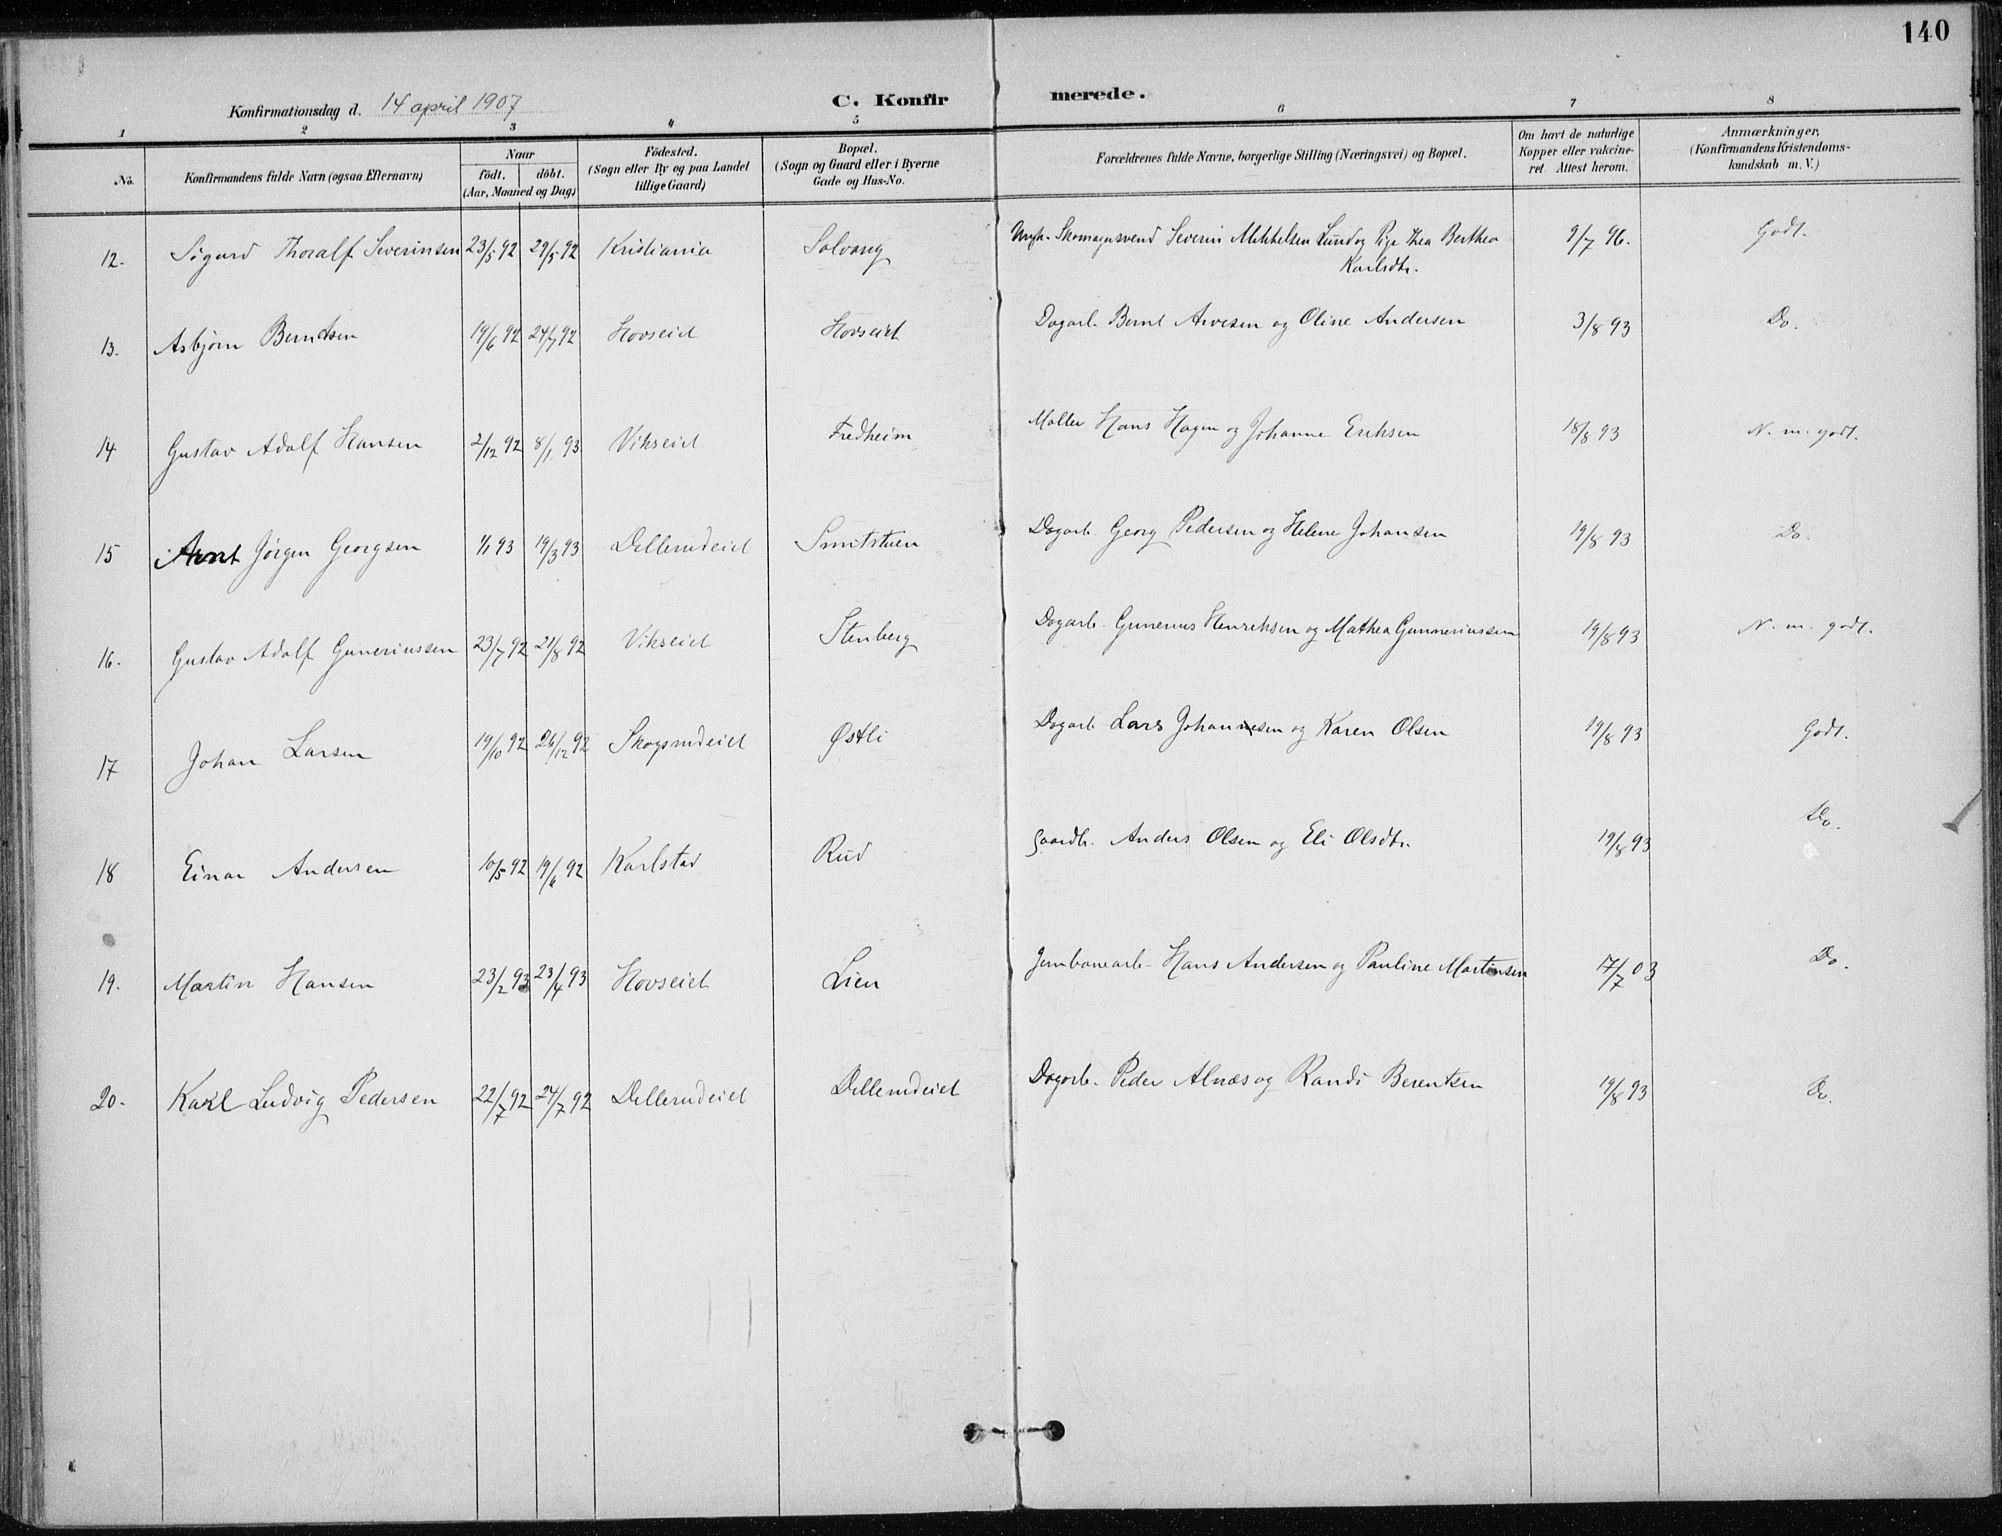 140
Konfirmationsdag d. 14 april 1907
C. Konfirmerede.
1 2 3 4 5 6 7 8
No. Konfirmandens fulde Navn (ogsaa Efternavn) Naar født. døbt. (Aar, Maaned og Dag) Fødested. (Sogn eller By og paa Landet tillige Gaard) Bopæl. (Sogn og Gaard eller i Byerne Gade og Hus-No. Forældrenes fulde Navne, borgerlige Stilling (Næringsvei) og Bopæl. Om havt de naturlige Kopper eller vakcineret. Attest herom. Anmærkninger, (Konfirmandens Kristendomskundskab m. V.)
12. Sigurd Thoralf Severinsen 23/5 92 29/5 92 Kristiania Solvang Skomagersvend Severin Mikkelsen Lund og Pige Thea Berthea 9/7 96. Godt.
Karlsdtr.
13. Asbjørn Berntsen 19/6 92 24/7 92 Hovseiet Hovseiet Dagarb. Bernt Arvesen og Oline Andersen 3/8 93 Do.
14 Gustav Adolf Hansen 2/12 92 8/1 93 Vikseiet Fredheim Møller Hans Hagen og Johanne Eriksen 18/8 93 N. m. godt.
15 Arnt Jørgen Georgsen 1/1 93 19/3 93 Dellerudeiet Smitstuen Dagarb. Georg Pedersen og Helene Johansen 19/8 93 Do.
16. Gustav Adolf Guneriussen 23/7 92 21/8 92 Vikseiet Stenberg Dagarb. Gunerius Henriksen og Mathea Gunneriussen 19/8 93 N. m. godt.
17 Johan Larsen 19/10 92 26/12 92 Skogsrudeiet Østli Dagarb. Lars Johannesen og Karen Olsen 19/8 93 Godt.
18 Einar Andersen 10/5 92 19/6 92 Karlstad Rud Gaardb. Anders Olsen og Eli Olsdtr. 19/8 93 Do.
19. Martin Hansen 23/2 93 23/4 93 Hovseiet Lien Jernbanearb. Hans Andersen og Pauline Martinsen 17/7 03 Do.
20. Karl Ludvig Pedersen 22/7 92 24/7 92 Dellerudeiet Dellerudeiet Dagarb. Peder Alnæs og Randi Berentsen 19/8 93 Do.